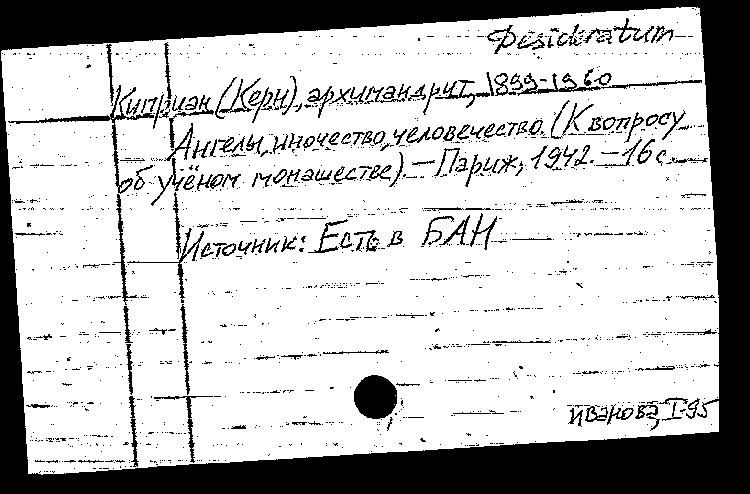 Desideratum
Киприан (Керн), архимандрит, 1899-1960
Ангелы, иночество, человечество. (К вопросу
об учёном монашестве). — Париж, 1942. — 16 с.
Источник: Есть в БАН
Иванова, I-95